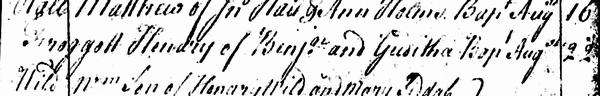 Hall Matthew of Jnº Hall & Ann Holms Bapt Augst 16
Froggott Henary of Benjn and Gusitha Bapt Augst 22
Wild Wm Son of Henary Wild and Mary